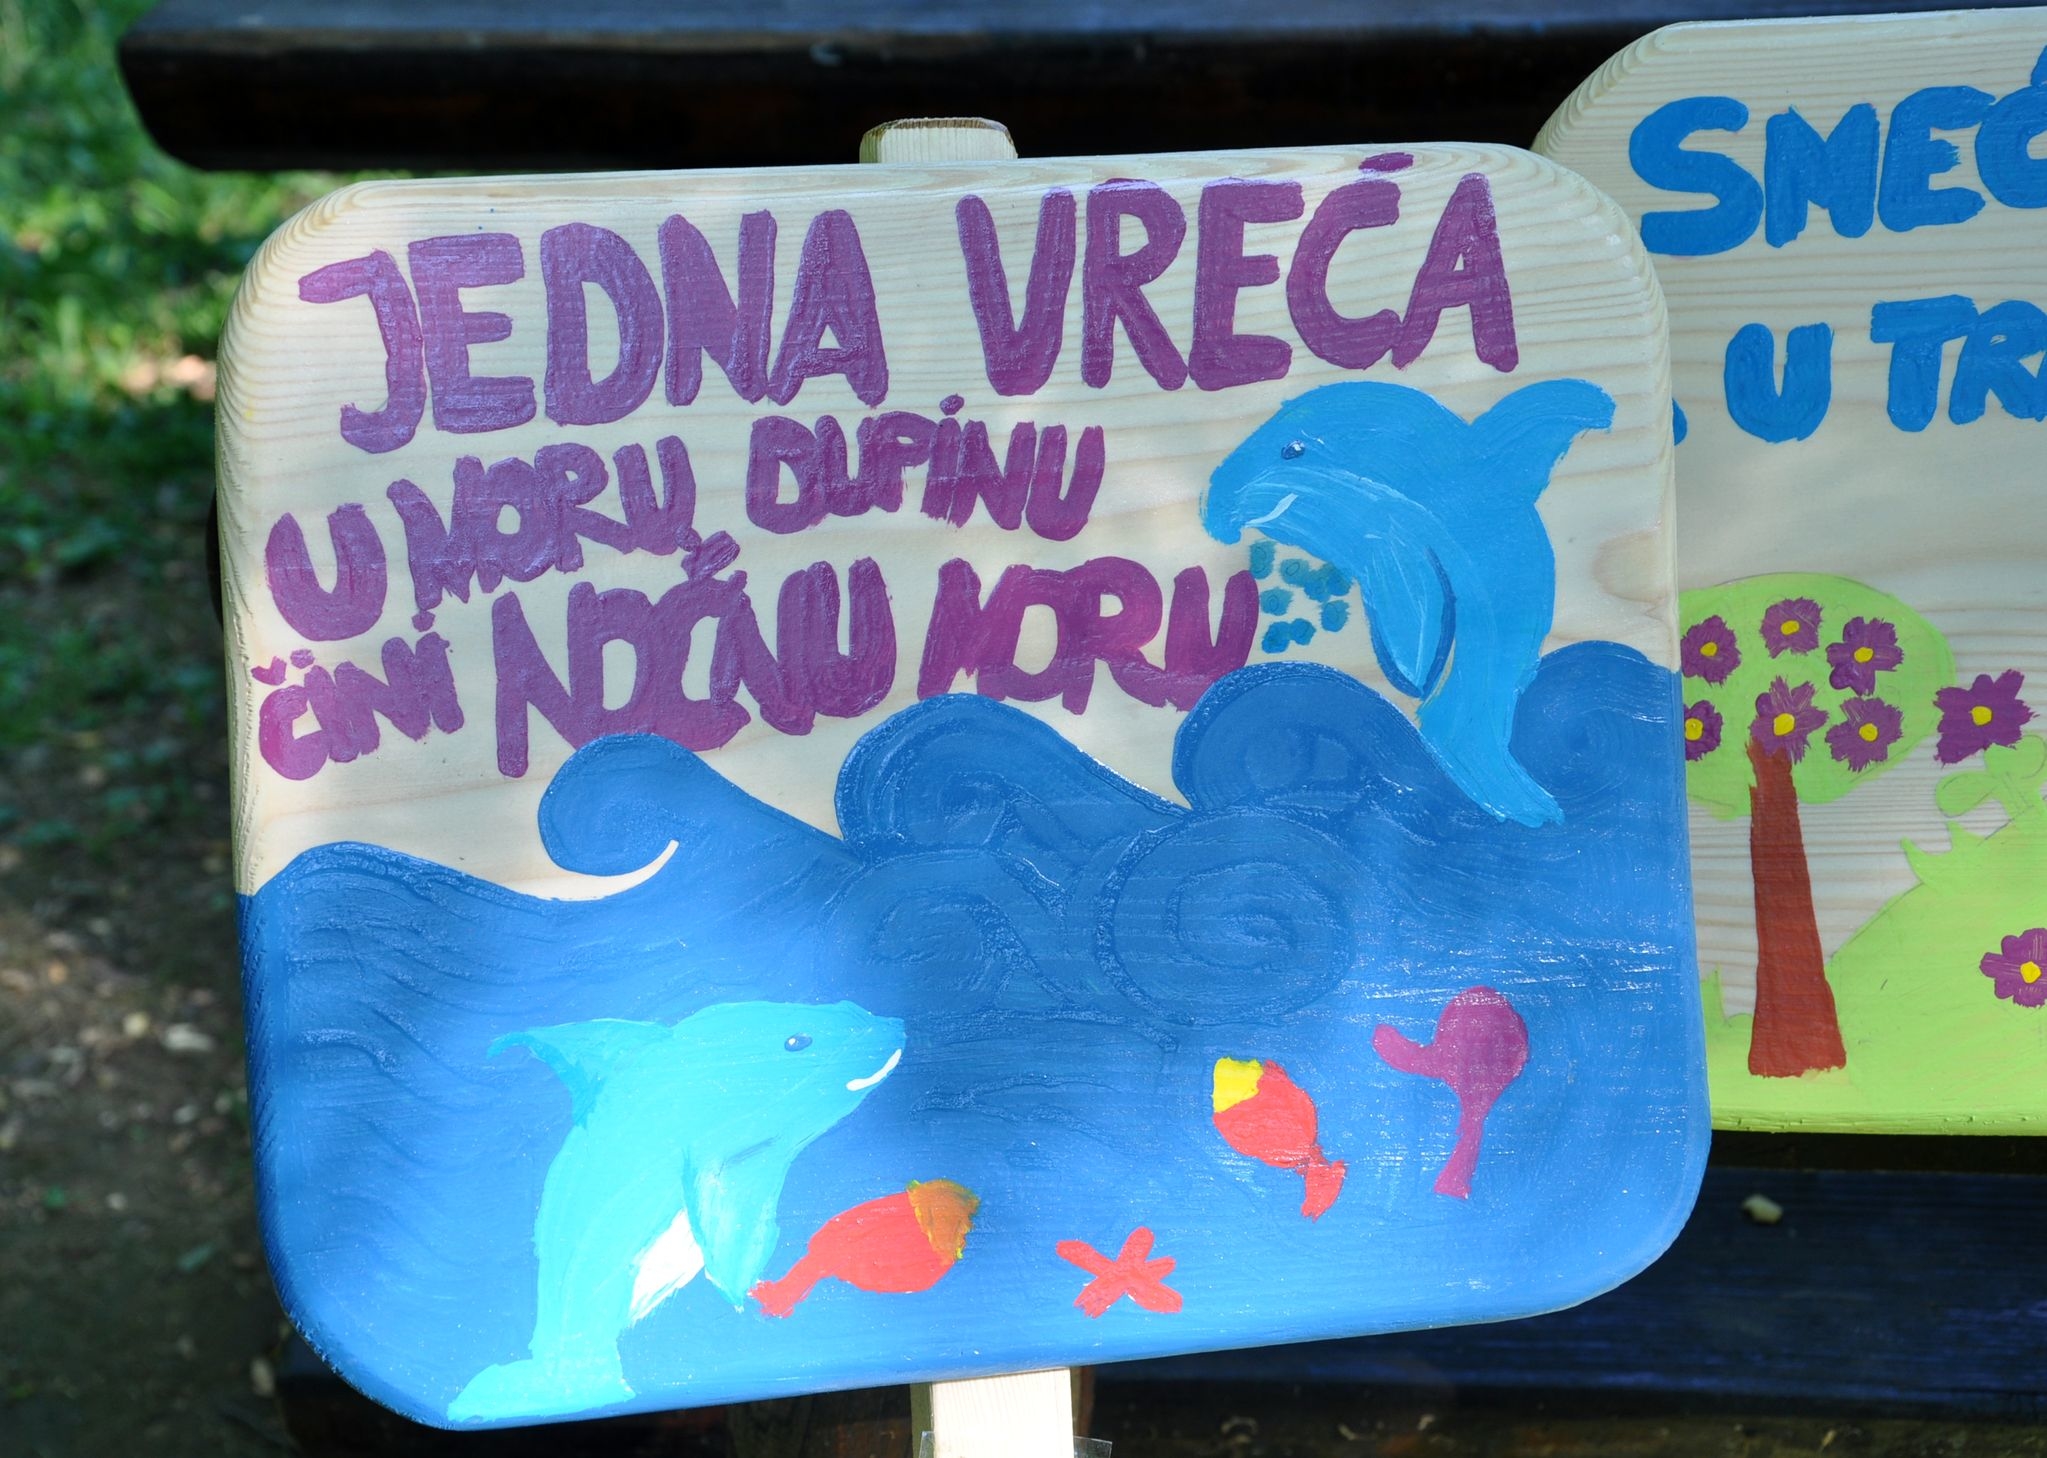 JEDNA VREĆA
U MORU, DUPINU
ČINI NOĆNU MORU
U